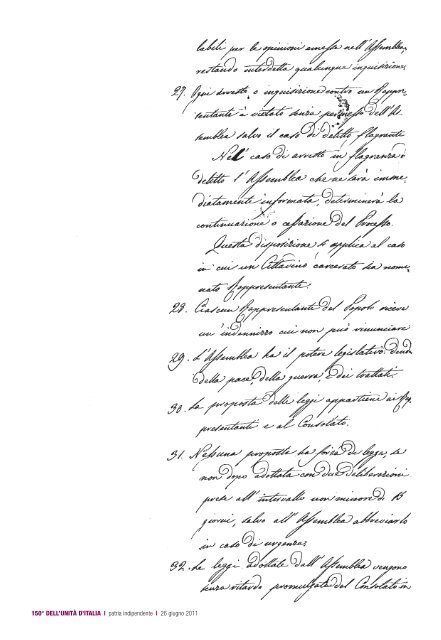 labili per le opinioni emesse nell'Assemblea,
restando interdetta qualunque inquisizione.
27. Ogni arresto o inquisizione contro un Rappre-
sentante è vietato senza permesso dell'As
semblea salvo il caso di delitto flagrante
Nel caso di arresto in flagranza di
delitto l'Assemblea che ne sarà imme
diatamente informata, determinerà la
continuazione o cessazione del Processo.
Questa disposizione si applica al caso
in cui un Cittadino carcerato sia nomi
nato Rappresentante.
28. Ciascun Rappresentante del Popolo riceve
un indennizzo cui non può rinunciare
29. L'Assemblea ha il potere legislativo: decide
della pace della guerra, e dei trattati.
30. La proposta delle leggi appartiene ai Rap
presentanti e al Consolato.
31. Nessuna proposta ha forza di legge, se
non dopo adottata con due deliberazioni
presa all'intervallo non minore di
giorni, salvo all'Assemblea abbreviarlo
in caso di urgenza.
32. Le leggi adottate dall'Assemblea vengono
senza ritardo promulgate dal Consolato in
150° DELL'UNITÀ D'ITALIA | patria indipendente | 26 giugno 2011